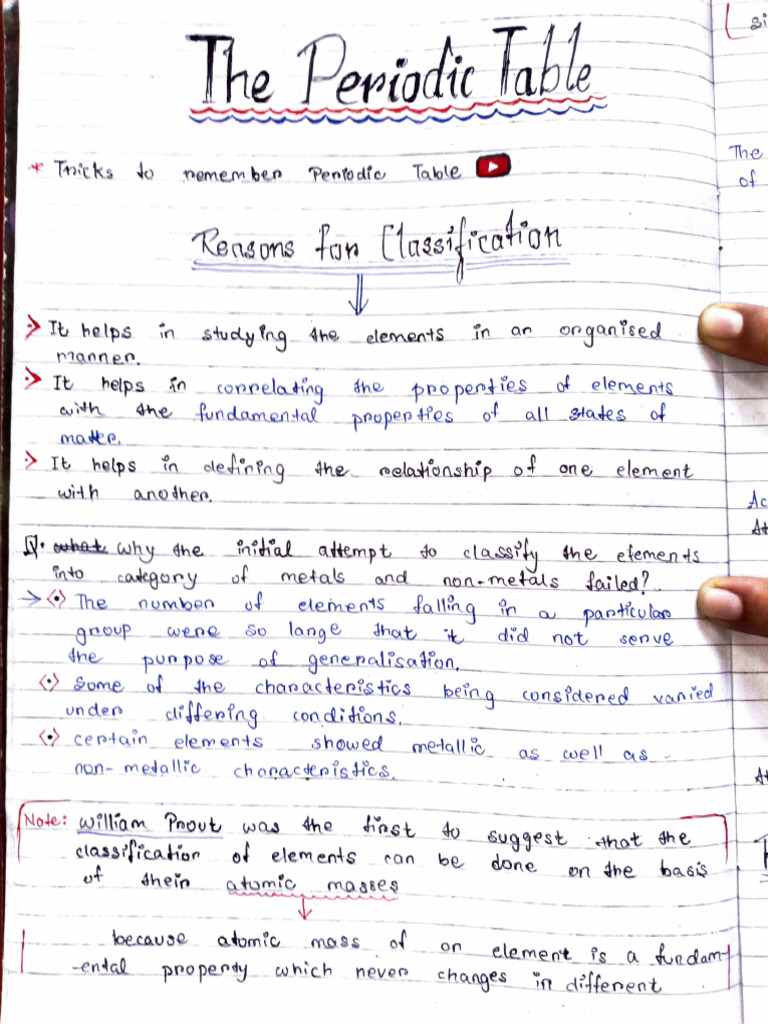 The Periodic Table
* Tricks to remember Periodic Table
Reasons for Classification
It helps in studying the elements in an organised
manner.
It helps in correlating the properties of elements
with the fundamental properties of all states of
matter.
It helps in defining the relationship of one element
with another.
Q. what why the initial attempt to classify the elements
into category of metals and non-metals failed?
The number of elements falling in a particular
group were so large that it did not serve
the purpose of generalisation.
Some of the characteristics being considered varied
under differing conditions.
certain elements showed metallic as well as
non-metallic characteristics.
Note: William Prout was the first to suggest that the
classification of elements can be done on the basis
of their atomic masses
because atomic mass of an element is a fundam-
-ental property which never changes in different
si
The
of
Ac
At
At